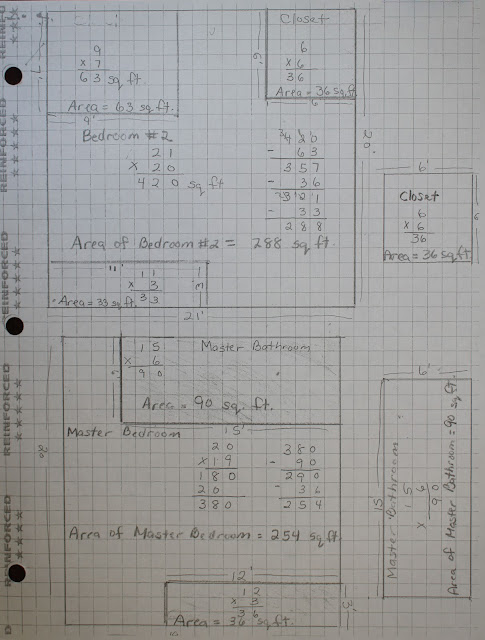 REINFORCED
9
x 7
63 sq ft.
Area = 63 sq ft.
7'
9'
Closet
6
x 6
36
Area = 36 sq ft.
6'
6
Bedroom #2
21
x 20
420 sq ft
420
- 63
357
- 36
321
- 33
288
20'
Area of Bedroom #2 = 288 sq ft.
11'
11
x 3
33
3'
Area = 33 sq ft.
21'
6'
Closet
6
x 6
36
Area = 36 sq ft.
6
REINFORCED
15
x 6
90
Master Bathroom
Area = 90 sq. ft.
15'
REINFORCED
Master Bedroom
20
x 19
180
20
380
380
- 90
290
- 36
254
Area of Master Bedroom = 254 sq ft.
12'
12
x 3
36
3'
Area = 36 sq ft.
REINFORCED
6'
15
Master Bathroom
15
x 6
90
Area of Master Bathroom = 90 sq ft.